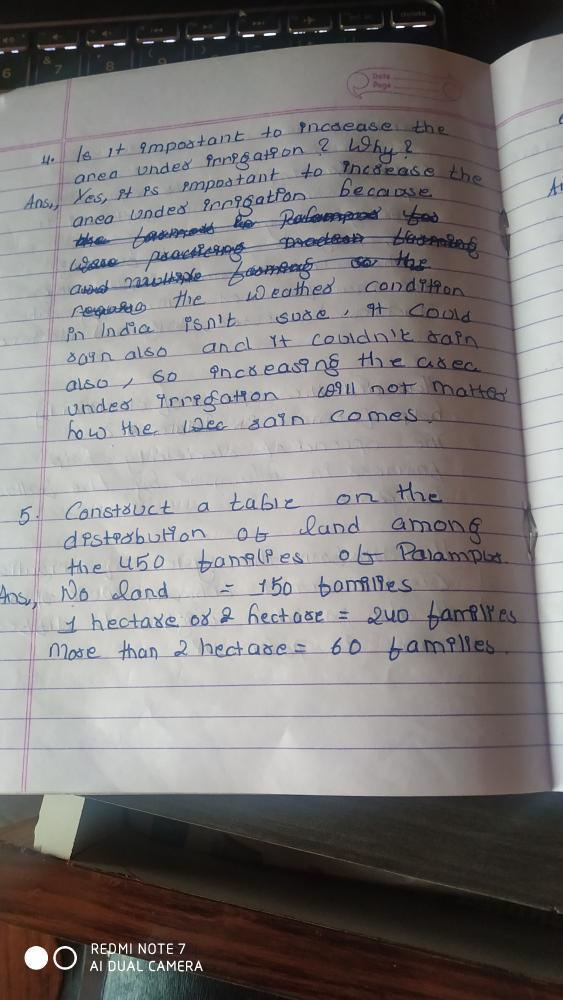 Date
Page
4. Is it important to increase the
area under irrigation? Why?
Ans., Yes, it is important to increase the
area under irrigation because
the farmers in Palampur for
were practicing modern farming
and multiple farming so the
the weather condition
in India isn't sure, it could
rain also and it couldn't rain
also, so increasing the area
under irrigation will not matter
how the rain comes.
5. Construct a table on the
distribution of land among
the 450 families of Palampur.
Ans, No land = 150 families
1 hectare or 2 hectare = 240 families
More than 2 hectare = 60 families.
REDMI NOTE 7
AI DUAL CAMERA